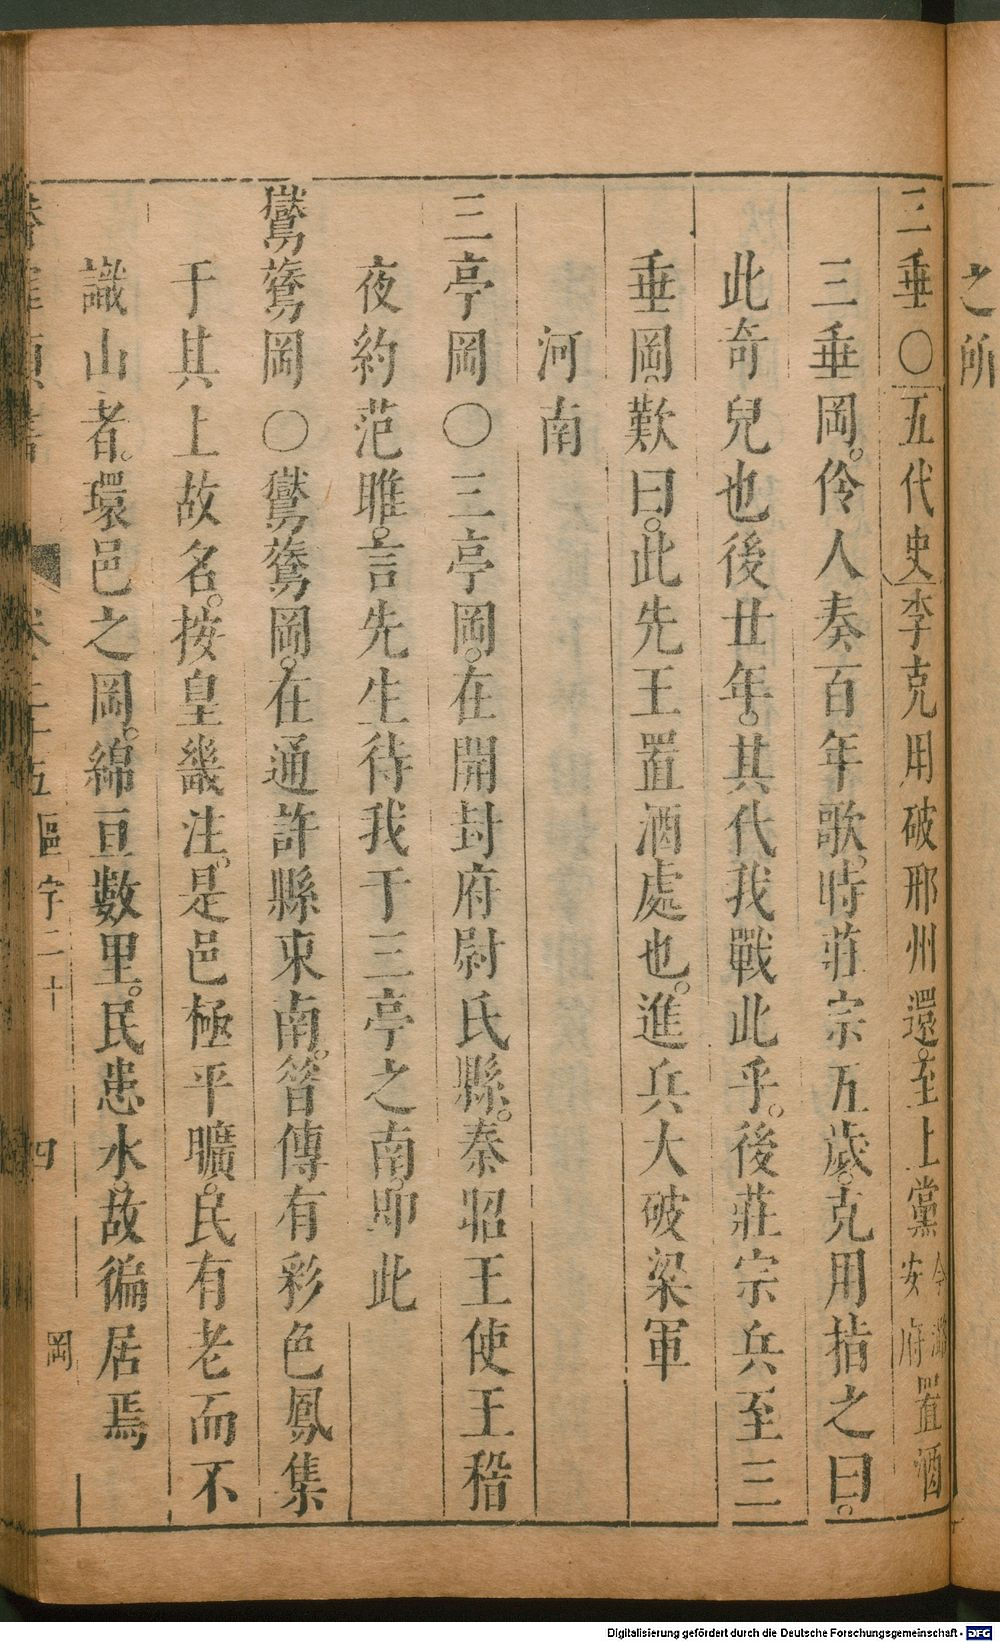 之所
三垂〇五代史李克用破邢州還。至上黨今潞安府置酒
三垂岡。伶人奏百年歌。時莊宗五歲。克用指之曰。
此奇兒也後廿年。其代我戰此乎。後莊宗兵至三
垂岡、歎曰。此先王置酒處也。進兵大破梁軍
河南
三亭岡〇三亭岡。在開封府尉氏縣。秦昭王使王稽
夜約范雎。言先生待我于三亭之南。即此
鸑鷟岡〇鸑鷟岡。在通許縣東南。昝傳有彩色鳳集
于其上故名。按皇畿注。是邑極平曠。民有老而不
識山者。環邑之岡。綿亘數里。民患水。故徧居焉
五 區字二十 四 岡
Digitalisierung gefördert durch die Deutsche Forschungsgemeinschaft - DFG